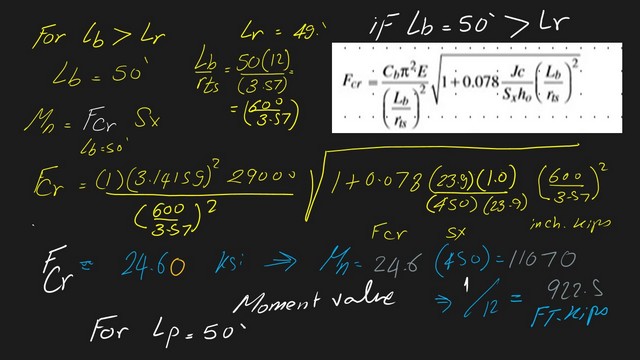 For Lb > Lr
Lr = 49.
if Lb = 50' > Lr
Lb = 50'
Lb/rts = 50(12)/(3.57) =
= (600/3.57)
Fcr = Cbπ²E/(Lb/rts)² √(1 + 0.078 Jc/(Sxho) (Lb/rts)²)
Mn = Fcr Sx
Lb=50'
Fcr = (1)(3.14159)² 29000/(600/3.57)² √(1+0.078 (23.9)(1.0)/((450)(23.9)) (600/3.57)²)
Fcr Sx inch.kips
Fcr = 24.60 ksi ⇒ Mn = 24.6 (450) = 11070
Moment value ⇒ 1/12 = 922.5
FT.kips
For Lp = 50'